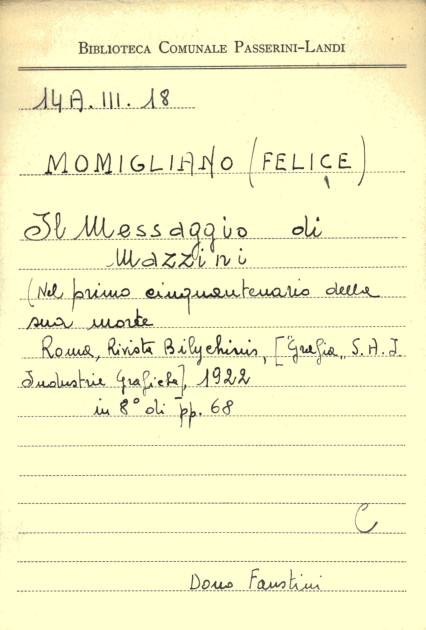 BIBLIOTECA COMUNALE PASSERINI-LANDI
14A. III. 18
MOMIGLIANO (FELICE)
Il Messaggio di
Mazzini
(Nel primo cinquantenario della
sua morte
Roma, Rivista Bilychinis, ["Grafia„ S. A. I.
Industrie Grafiche], 1922
in 8° di pp. 68
C
Dono Faustini